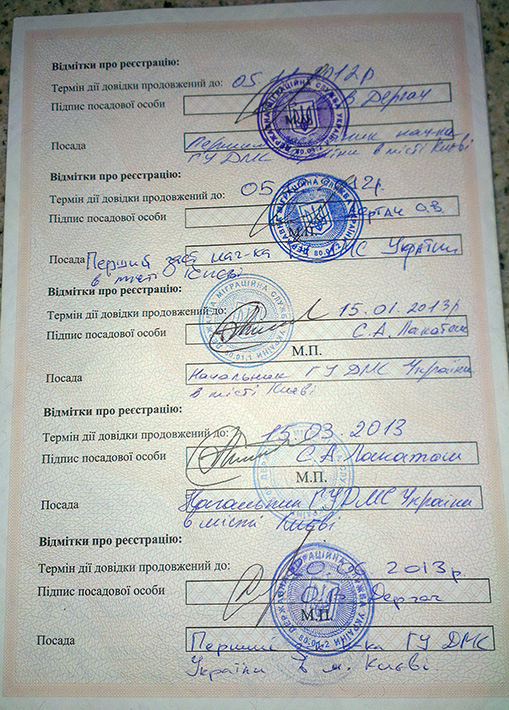 Відмітки про реєстрацію:
Термін дії довідки продовжений до: 05. 2012р
Підпис посадової особи в Дергач
М.П.
Посада Перший нач-ка
ГУ ДМС України в місті Києві
Відмітки про реєстрацію:
Термін дії довідки продовжений до: 05 12р.
Підпис посадової особи Дергач О.В.
М.П.
Посада Перший заст нач-ка МС України
в місті Києві
Відмітки про реєстрацію:
Термін дії довідки продовжений до: 15.01.2013р
Підпис посадової особи С.А. Лакатош
М.П.
Посада Начальник ГУ ДМС України
в місті Києві
Відмітки про реєстрацію:
Термін дії довідки продовжений до: 15.03.2013
Підпис посадової особи С.А Лакатош
М.П.
Посада ГУДМС України
в міста Києві
Відмітки про реєстрацію:
Термін дії довідки продовжений до: 2013р.
Підпис посадової особи Дергач
М.П.
Посада Перший ка ГУ ДМС
України в м. Києві.